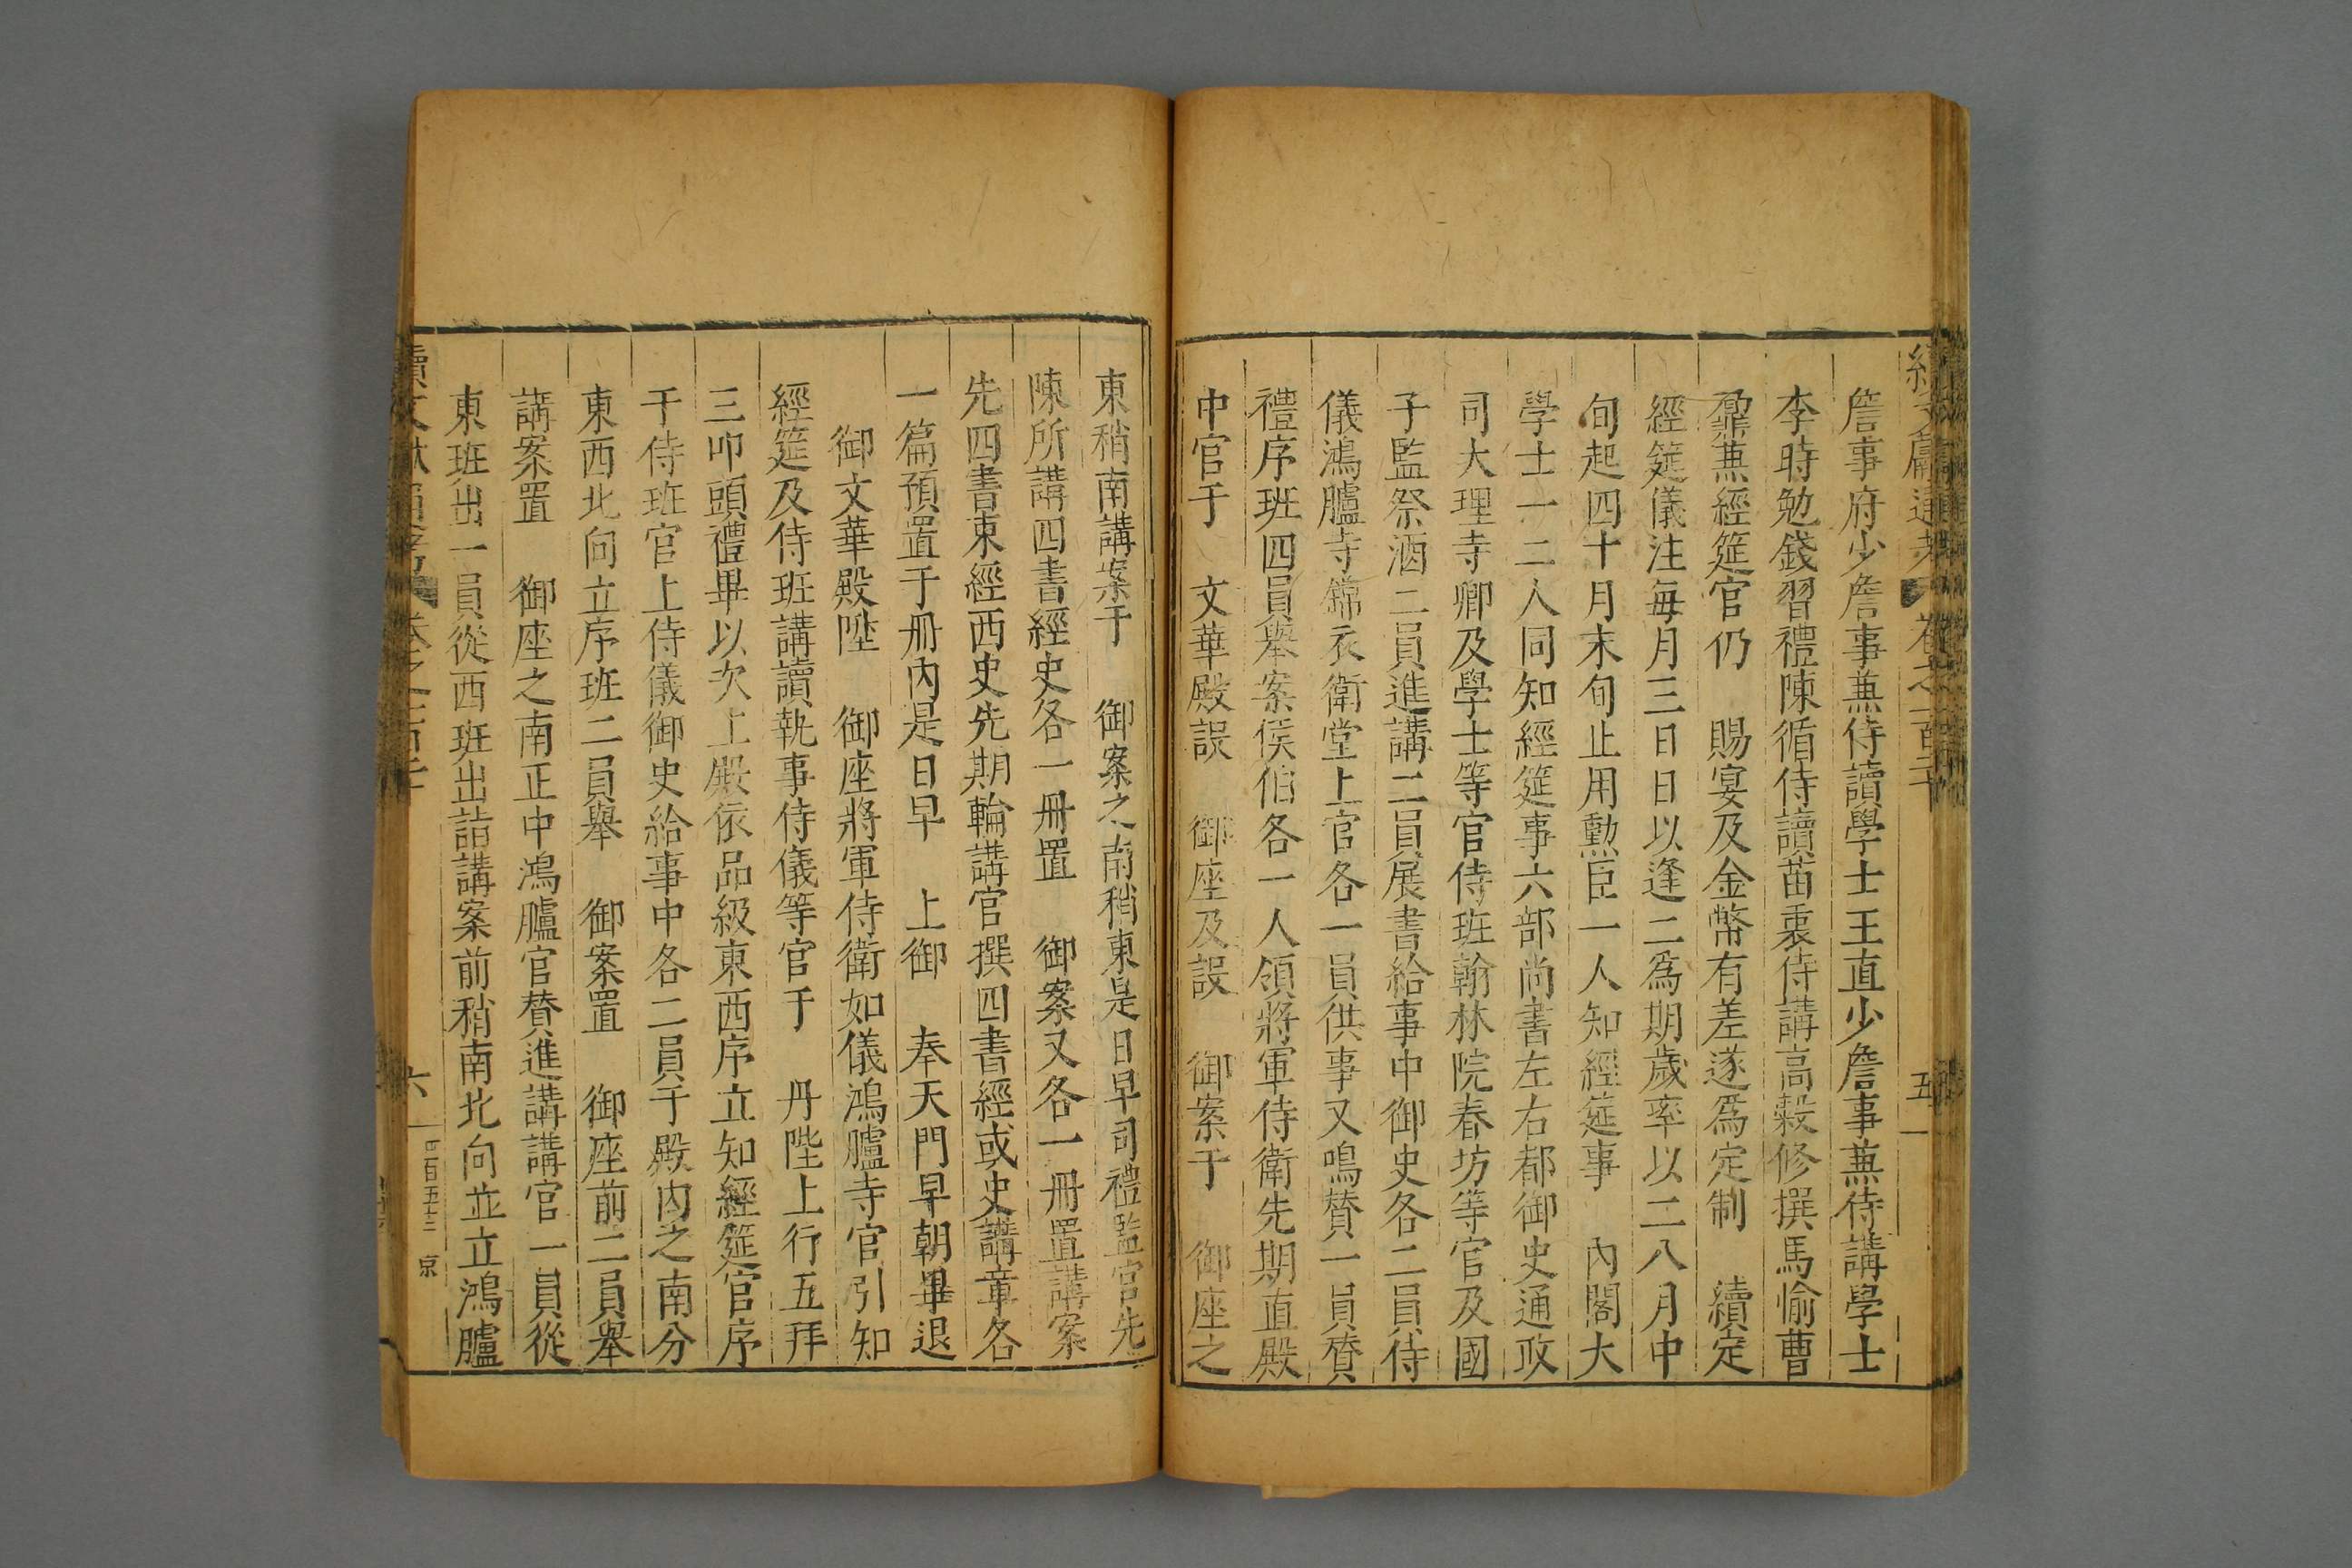 詹事府少詹事兼侍讀學士王直少詹事兼侍講學士
李時勉錢習禮陳循侍讀苗衷侍講高穀修撰馬愉曹
鼐兼經筵官仍 賜宴及金幣有差遂爲定制 續定
經筵儀注每月三日日以逢二爲期歲率以二八月中
旬起四十月末旬止用勳臣一人知經筵事 內閣大
學士一二人同知經筵事六部尚書左右都御史通政
司大理寺卿及學士等官侍班翰林院春坊等官及國
子監祭酒二員進講二員展書給事中御史各二員侍
儀鴻臚寺錦衣衛堂上官各一員供事又鳴贊一員贊
禮序班四員舉案侯伯各一人領將軍侍衛先期直殿
中官于 文華殿設 御座及設 御案于 御座之
東稍南講案于 御案之南稍東是日早司禮監官先
陳所講四書經史各一冊置 御案又各一冊置講案
先四書東經西史先期輪講官撰四書經或史講章各
一篇預置于冊內是日早 上御 奉天門早朝畢退
御文華殿陞 御座將軍侍衛如儀鴻臚寺官引知
經筵及侍班講讀執事侍儀等官于 丹陛上行五拜
三叩頭禮畢以次上殿依品級東西序立知經筵官序
于侍班官上侍儀御史給事中各二員于殿內之南分
東西北向立序班二員舉 御案置 御座前二員舉
講案置 御座之南正中鴻臚官贊進講講官一員從
東班出一員從西班出詣講案前稍南北向並立鴻臚
續文獻通考 卷之一百二十
六
四百五十二 京